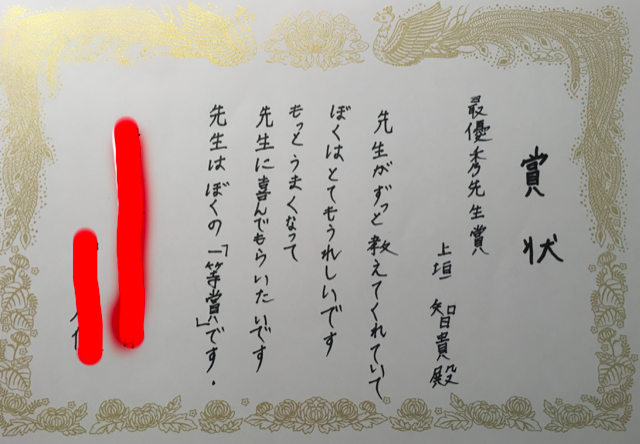 賞状
最優秀先生賞
上垣 智貴殿
先生がずっと教えてくれていて
ぼくはとてもうれしいです
もっとうまくなって
先生に喜んでもらいたいです
先生はぼくの「一等賞」です.